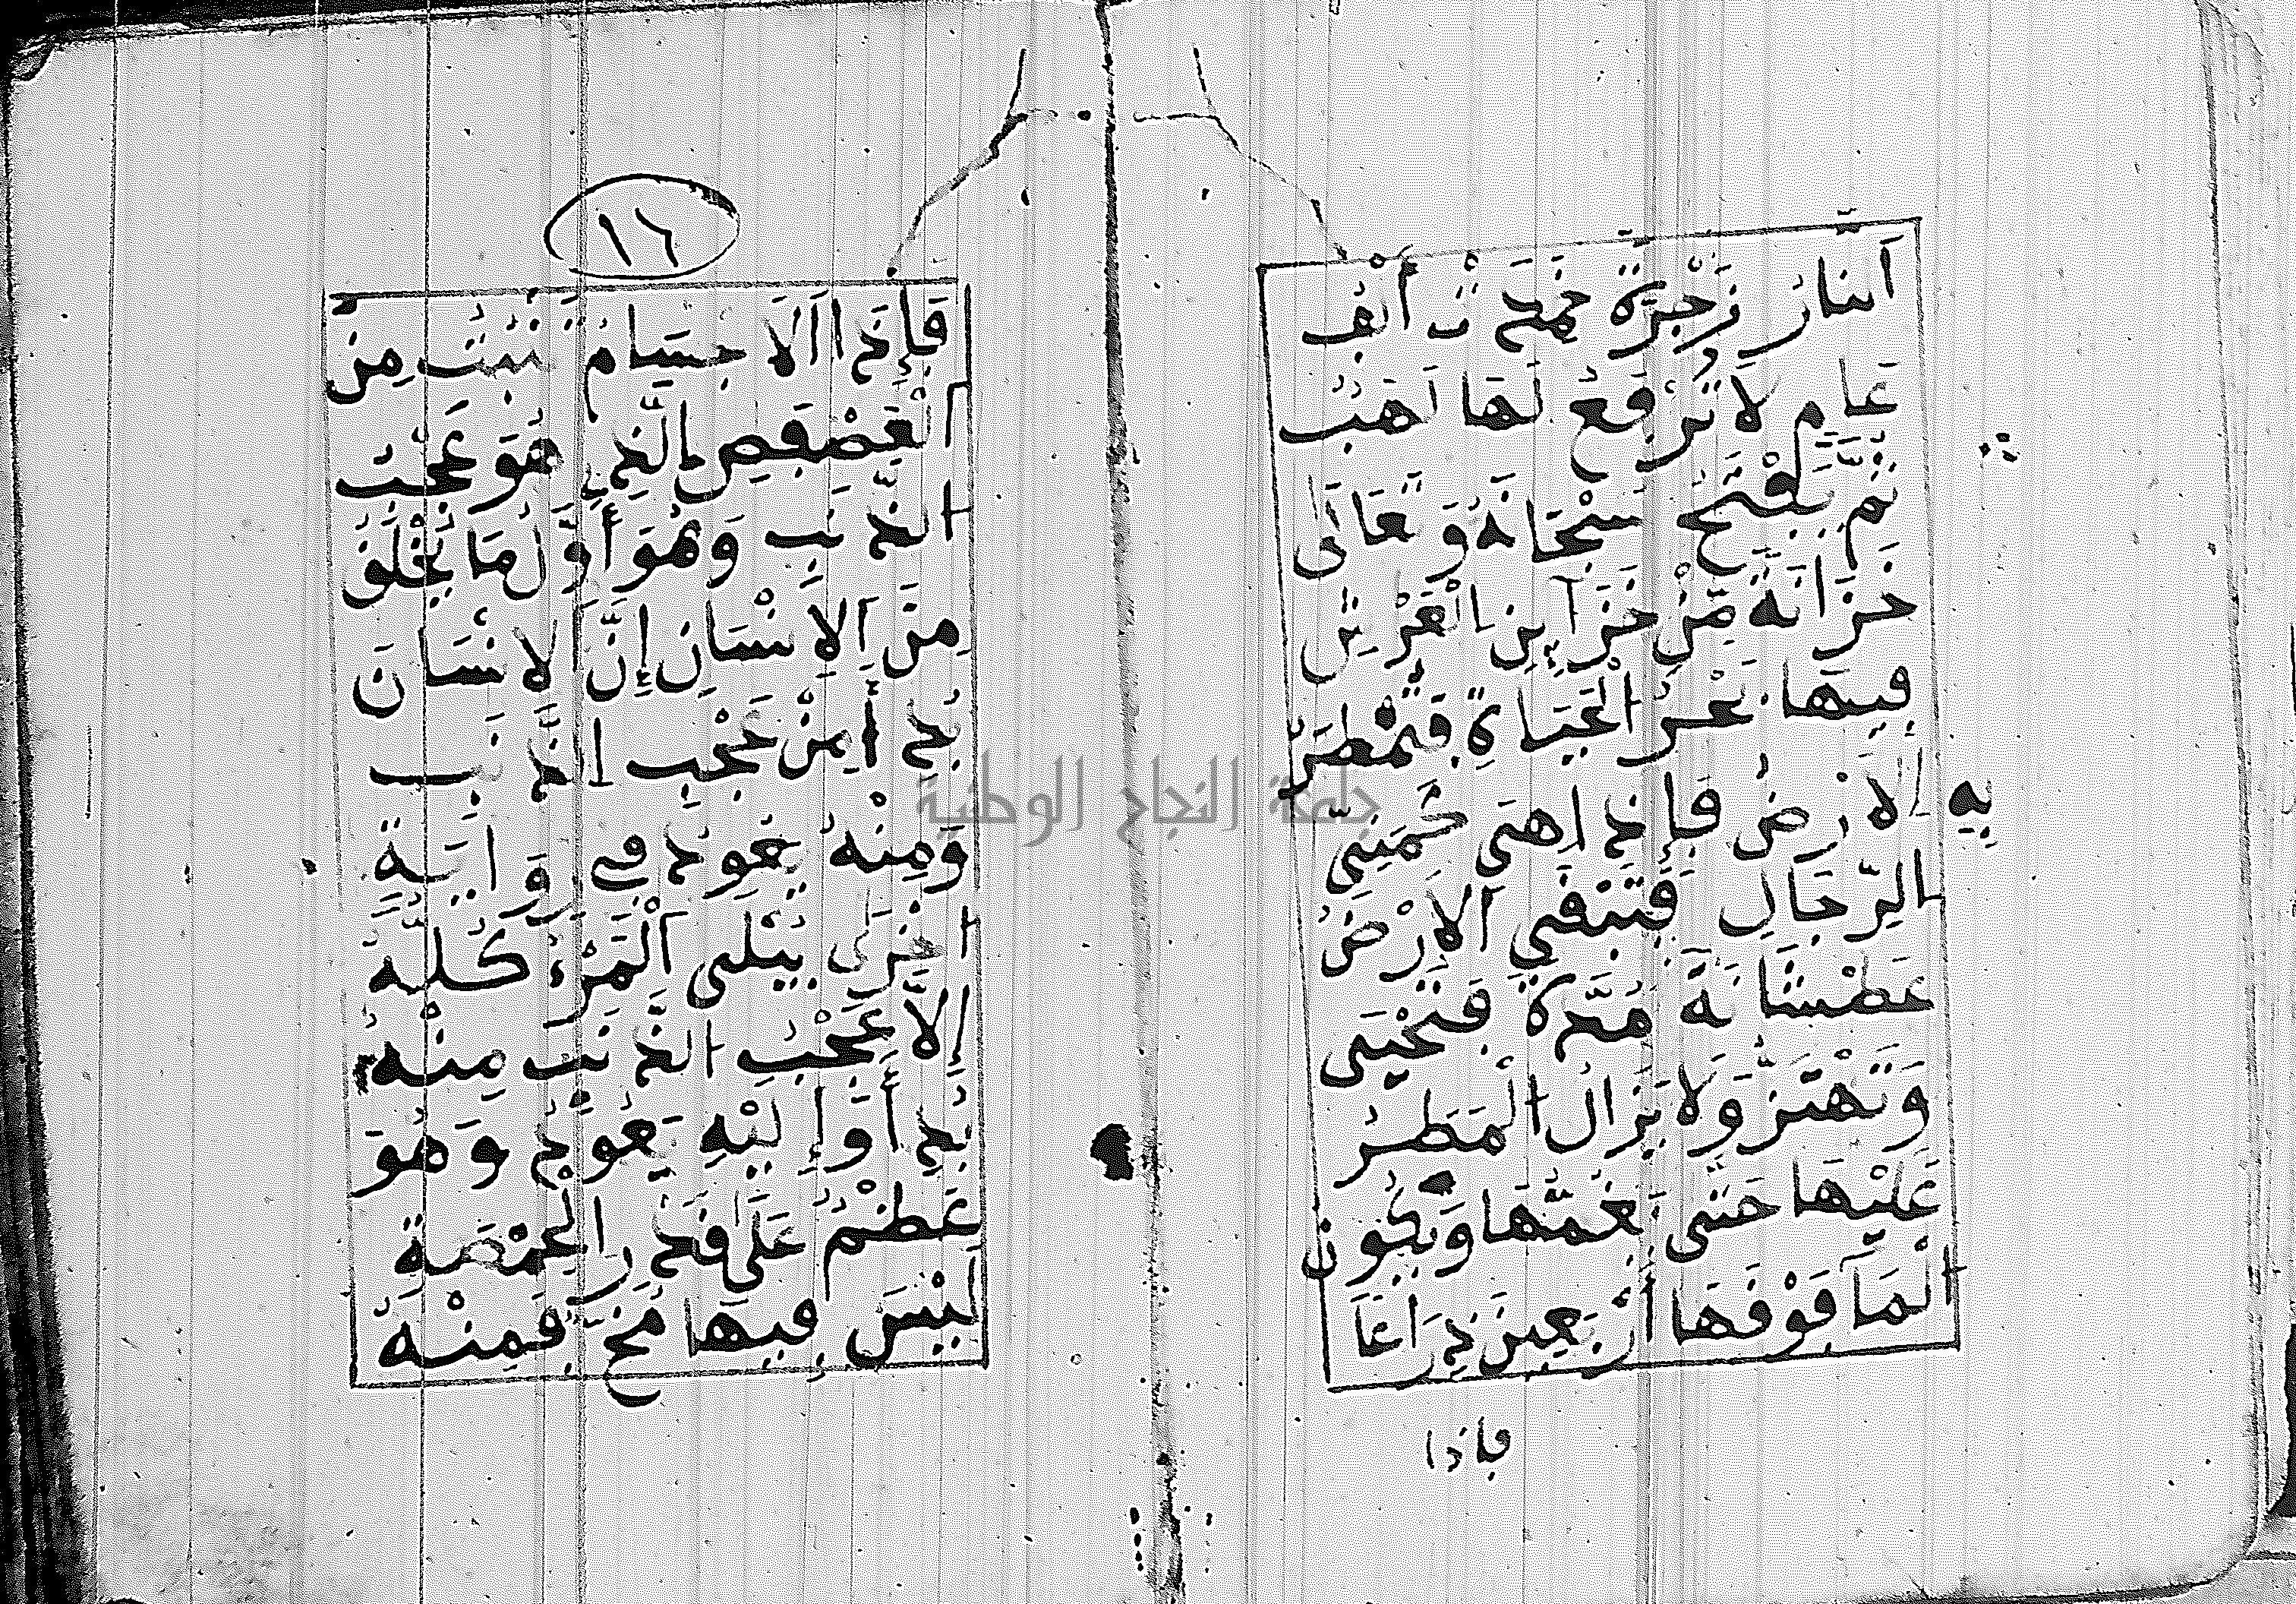 النار زجرة خمدت ألف
عام لا ترفع لها لهب
ثم يفتح سبحانه وتعالى
خزانة من خزاين العرش
فيها بحر الحياة فتمطر
به الارض فإذا هي كمني
الرجال فتبقي الارض
عطشانة مدة فتحيى
وتهتز ولا يزال المطر
عليها حتى يغمها ويكون
الما فوقها أربعين ذراعا
فإذا
١٦
فإذا الاجسام تنبت من
العصعص الذي هو عجب
الذنب وهو أول ما يخلق
من الانسان إن الانسان
بدأ من عجب الذنب
ومنه يعود في رواية
اخرى يبلى المرء كله
إلا عجب الذنب منه
بدأ وإليه يعود وهو
عظم على قدر الحمصة
ليس فيها مخ فمنه
جامعة النجاح الوطنية